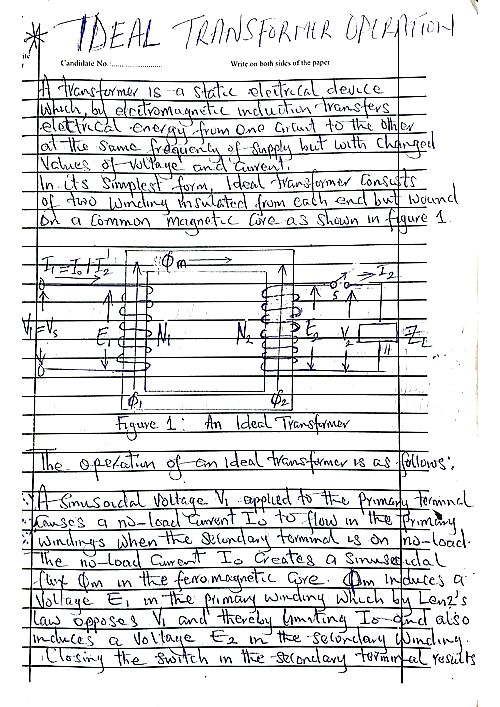 * IDEAL TRANSFORMER OPERATION
Candidate No. ........................ Write on both sides of the paper
A transformer is a static electrical device
which, by electromagnetic induction transfers
electrical energy from one circuit to the other
at the same frequency of supply but with changed
values of voltage and current.
In its simplest form, Ideal transformer consists
of two winding insulated from each end but wound
on a common magnetic core as shown in figure 1.
I₁ = I₀ + I₂' Φm → S ⇒ I₂
V₁ = Vs E₁ N₁ N₂ E₂ V₂
Φ₁ Φ₂
Figure 1: An Ideal Transformer
The operation of an Ideal transformer is as follows:
A sinusoidal voltage V₁ applied to the primary terminal
causes a no-load current I₀ to flow in the primary
windings when the secondary terminal is on no-load.
The no-load current I₀ creates a sinusoidal
flux Φm in the ferromagnetic core. Φm induces a
voltage E₁ in the primary winding which by Lenz's
law opposes V₁ and thereby limiting I₀ and also
induces a voltage E₂ in the secondary winding.
Closing the switch in the secondary terminal results